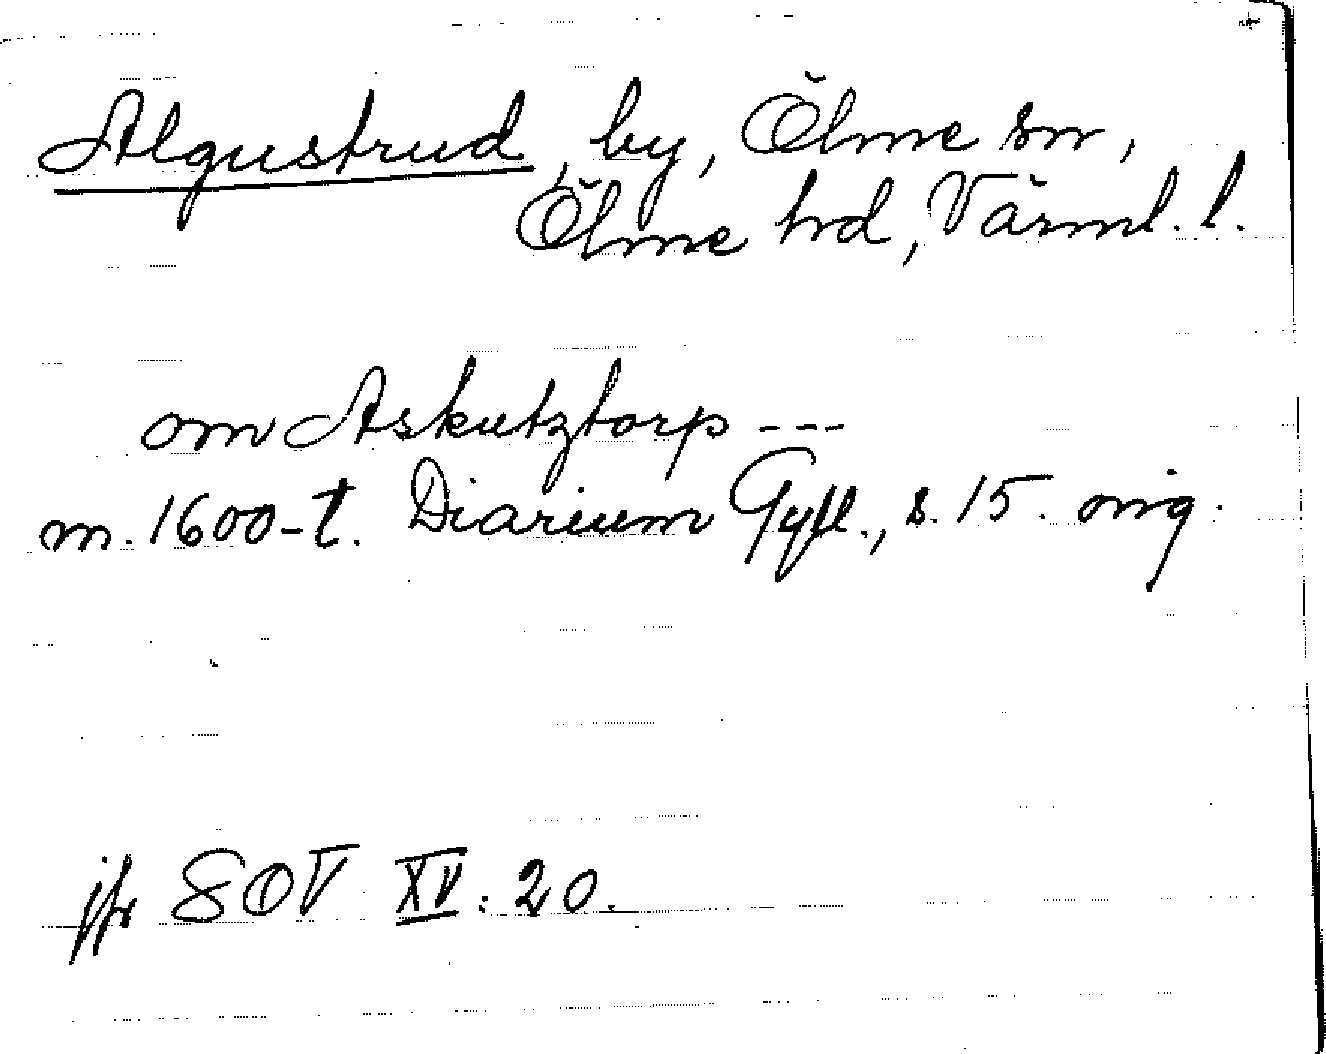 Algustrud, by, Ölme sn,
Ölme hd, Värml. l.
om Askutztorp ---
m. 1600-t. Diarium Gyll., s. 15. orig.
jfr SOV XV: 20.